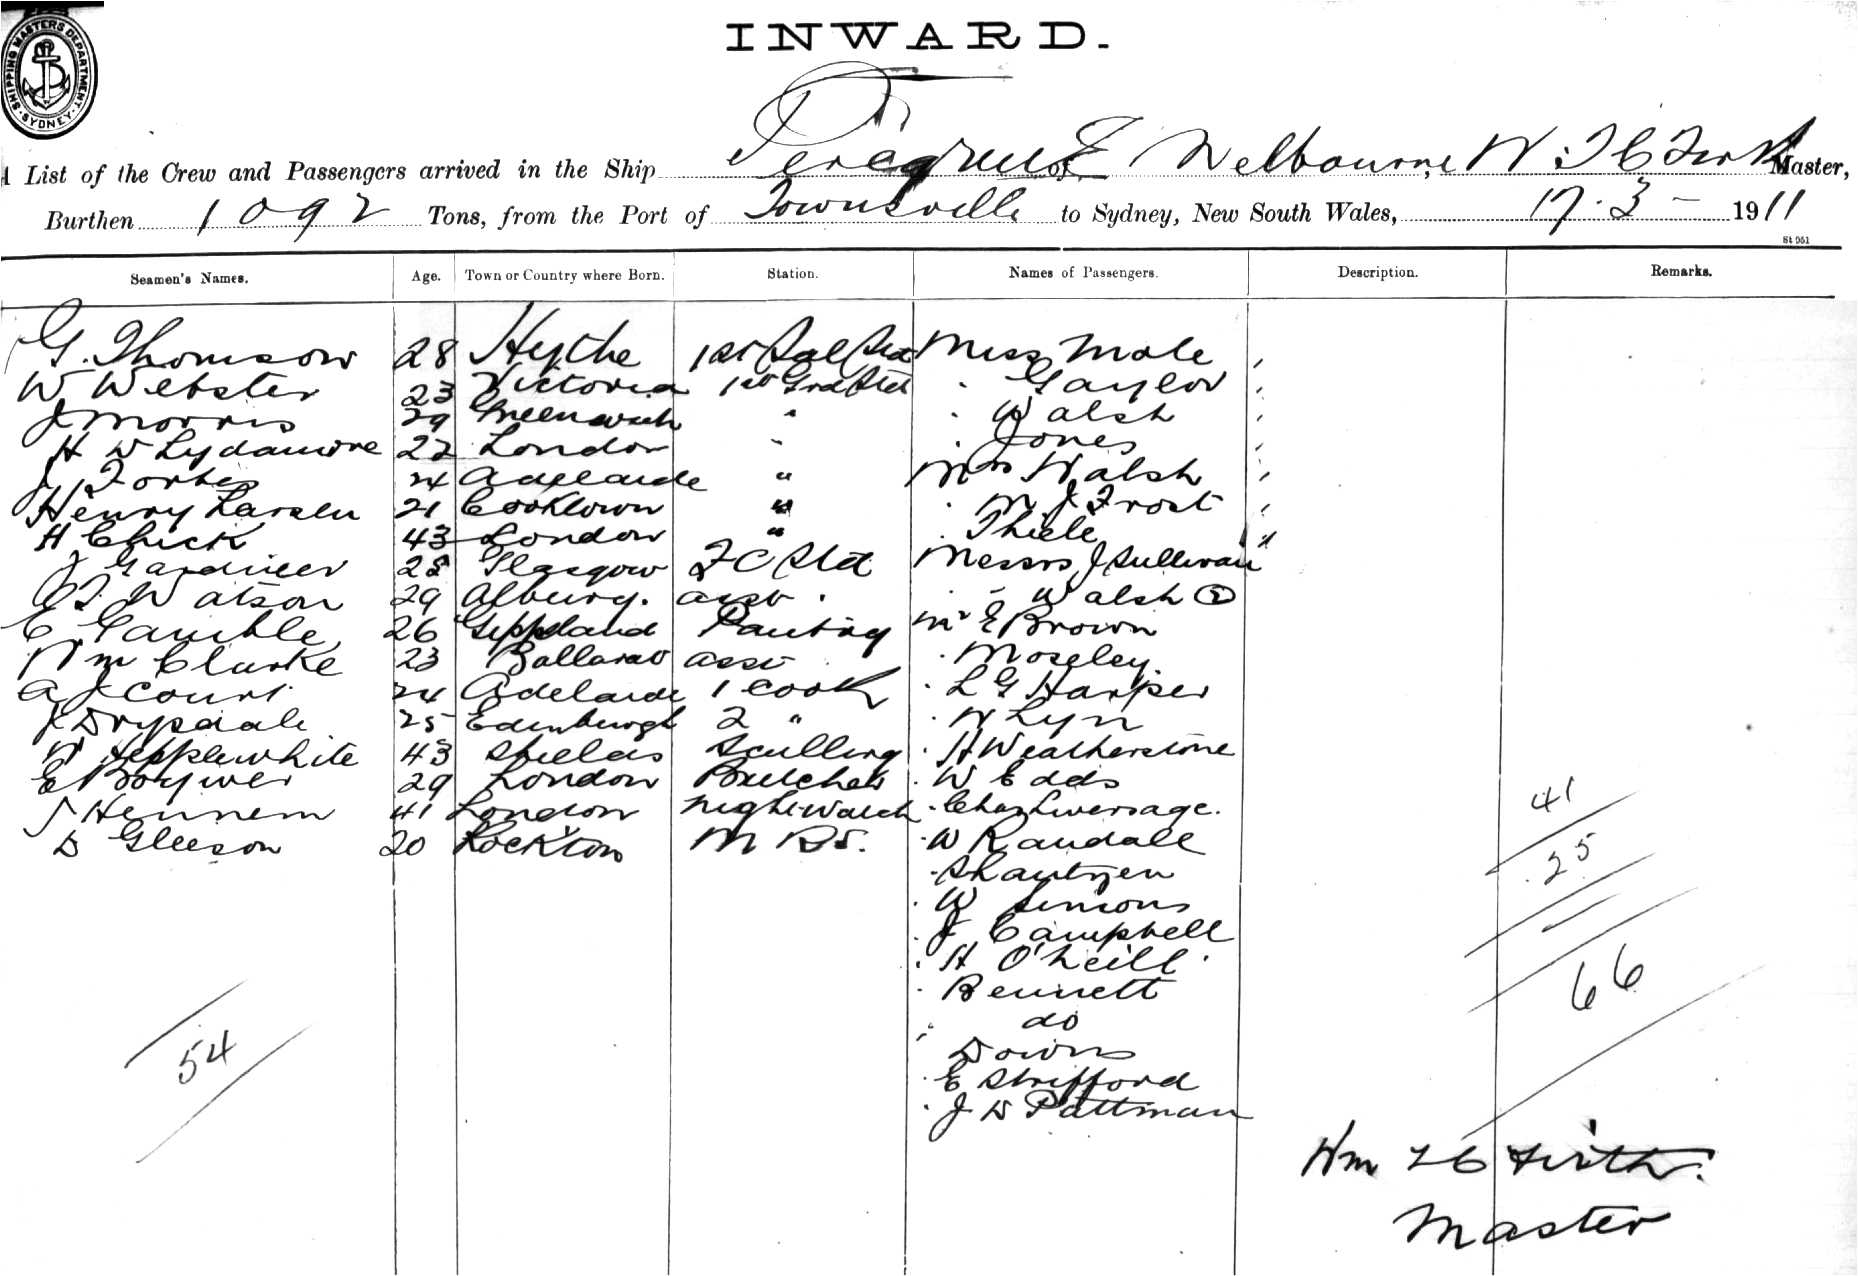 SHIPPING MASTERS DEPARTMENT. SYDNEY.
INWARD.
A List of the Crew and Passengers arrived in the Ship Peregrine of Melbourne, W. F C Firth Master,
Burthen 1092 Tons, from the Port of Townsville to Sydney, New South Wales, 17.3 - 1911
St 951
Seamen's Names. Age. Town or Country where Born. Station. Names of Passengers. Description. Remarks.
G. Thomson 28 Hythe 1st Sal Std Miss Mole
W Webster 23 Victoria 1st Grd Std " Gaylor
J Morris 29 Greenwich " " Walsh
H W Lydamore 22 London " " Jones
J Forbes 24 Adelaide " Mrs Walsh
Henry Larsen 21 Cooktown " " M J Frost
H Chick 43 London " " Thiele
J Gardiner 28 Glasgow F C Std Messrs J Sullivan
Watson 29 Albury. asst. " Walsh (2)
E Gamble 26 Gippsland Pantry Mr E Brown
Wm Clarke 23 Ballarat asst " Moseley.
A J Court 24 Adelaide 1 Cook " L G Harper
J Drysdale 25 Edinburgh 2 " " W Lyn
W Hepplewhite 43 Shields Scullery " H Weatherstone
E Bowyer 29 London Butcher " W Edds
J Hennem 41 London Nightwatch " Chas Liversage.
D Gleeson 20 Rockton M R S. " W Randall
" Shautzen
" W Simons
" J Campbell
" H O'Neill
" Bennett
" do
Downs
" E Strifford
" J D Pattman
41
25
66
54
Wm F C Firth.
Master